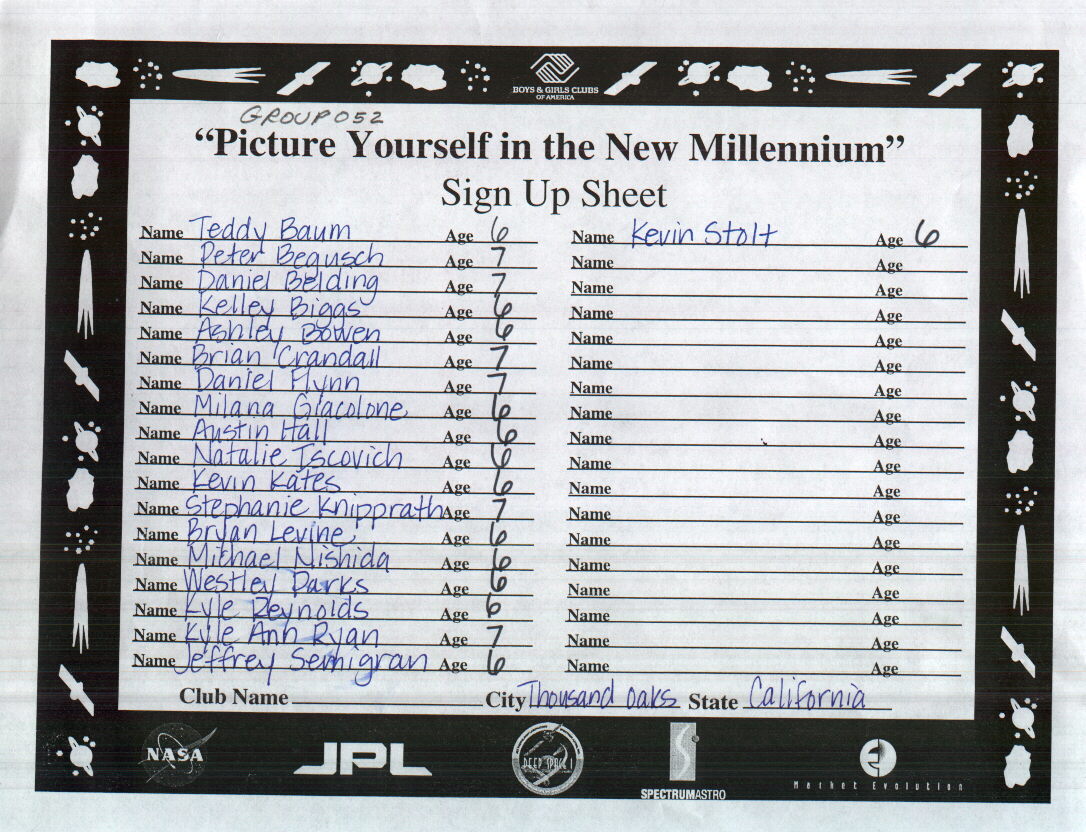 BOYS & GIRLS CLUBS
OF AMERICA
GROUP 052
“Picture Yourself in the New Millennium”
Sign Up Sheet
Name Teddy Baum Age 6
Name Peter Begusch Age 7
Name Daniel Belding Age 7
Name Kelley Biggs Age 6
Name Ashley Bowen Age 6
Name Brian Crandall Age 7
Name Daniel Flynn Age 7
Name Milana Giacolone Age 6
Name Austin Hall Age 6
Name Natalie Iscovich Age 6
Name Kevin Kates Age 6
Name Stephanie Knipprath Age 7
Name Bryan Levine Age 6
Name Michael Nishida Age 6
Name Westley Parks Age 6
Name Kyle Reynolds Age 6
Name Kyle Ann Ryan Age 7
Name Jeffrey Semigran Age 6
Name Kevin Stolt Age 6
Name Age
Name Age
Name Age
Name Age
Name Age
Name Age
Name Age
Name Age
Name Age
Name Age
Name Age
Name Age
Name Age
Name Age
Name Age
Name Age
Name Age
Club Name City Thousand Oaks State California
NASA
JPL
DEEP SPACE 1
SPECTRUMASTRO
Market Evolution